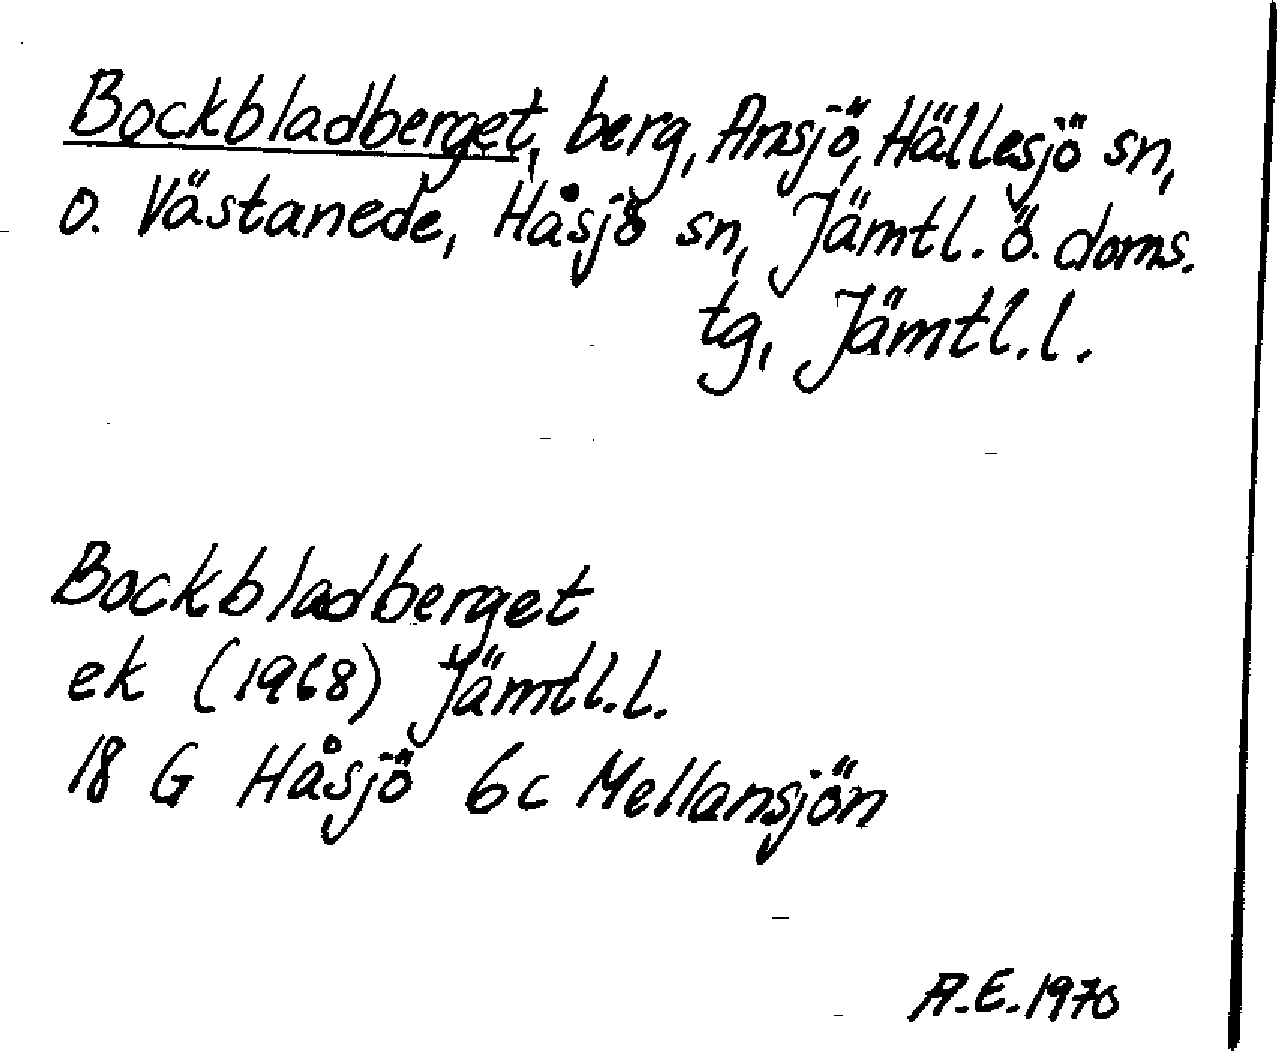 Bockbladberget, berg, Ansjö, Hällesjö sn,
o. Västanede, Håsjö sn, Jämtl. ö. doms.
tg, Jämtl. l.
Bockbladberget
ek (1968) Jämtl. l.
18 G Håsjö 6c Mellansjön
A.E. 1970